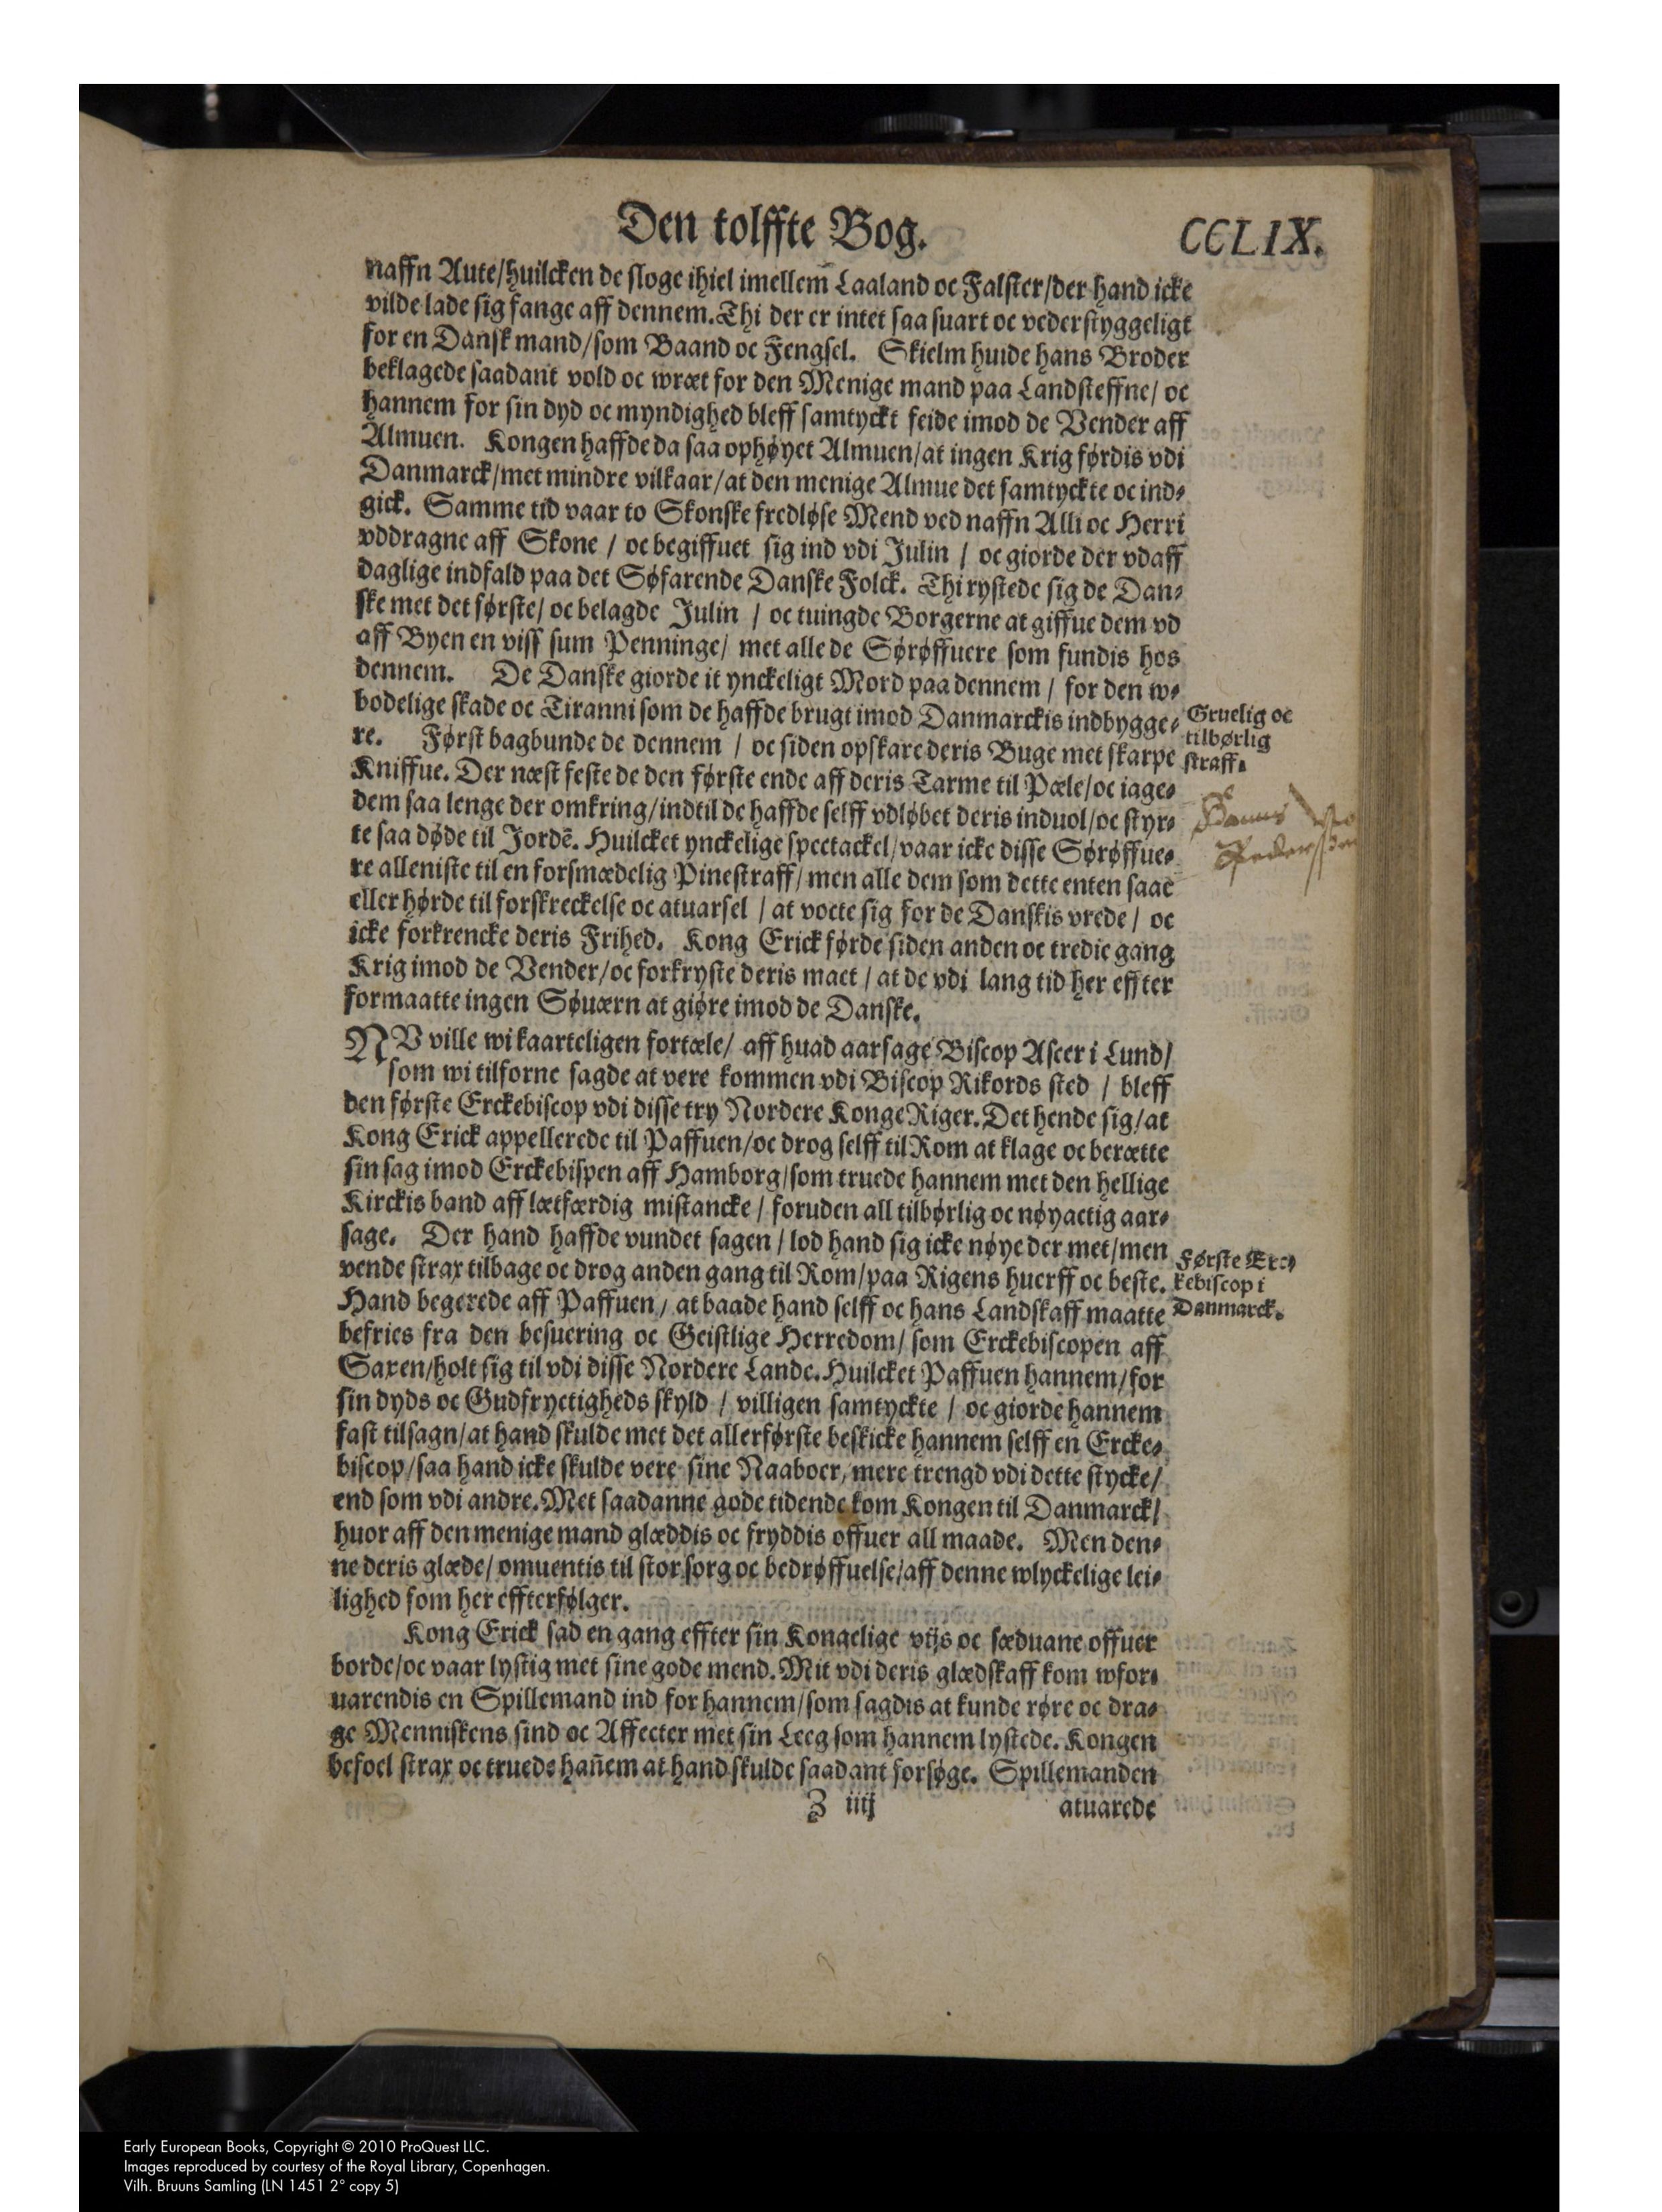 Den tolffte Bog.
CCLIX.
naffn Aute/huilcken de sloge ihiel imellem Laaland oc Falster/der hand icke
vilde lade sig fange aff dennem. Thi der er intet saa suart oc vederstyggeligt
for en Dansk mand/som Baand oc Fengsel. Skielm huide hans Broder
beklagede saadant vold oc wræt for den Menige mand paa Landsteffne/ oc
hannem for sin dyd oc myndighed bleff samtyckt feide imod de Vender aff
Almuen. Kongen haffde da saa ophøyet Almuen/at ingen Krig førdis vdi
Danmarck/met mindre vilkaar/at den menige Almue det samtyckte oc ind⸗
gick. Samme tid vaar to Skonske fredløse Mend ved naffn Alli oc Herri
vddragne aff Skone / oc begiffuet sig ind vdi Julin / oc giorde der vdaff
daglige indfald paa det Søfarende Danske Folck. Thi rystede sig de Dan⸗
ske met det første/ oc belagde Julin / oc tuingde Borgerne at giffue dem vd
aff Byen en viss sum Penninge/ met alle de Sørøffuere som fundis hos
dennem. De Danske giorde it ynckeligt Mord paa dennem / for den w⸗
bodelige skade oc Tiranni som de haffde brugt imod Danmarckis indbygge⸗
re. Først bagbunde de dennem / oc siden opskare deris Buge met skarpe
Kniffue. Der næst feste de den første ende aff deris Tarme til Pæle/oc iage⸗
dem saa lenge der omkring/indtil de haffde selff vdløbet deris induol/oc styr⸗
te saa døde til Jordē. Huilcket ynckelige spectackel/vaar icke disse Sørøffue⸗
re alleniste til en forsmædelig Pinestraff/men alle dem som dette enten saae
eller hørde til forskreckelse oc atuarsel / at vocte sig for de Danskis vrede / oc
icke forkrencke deris Frihed. Kong Erick førde siden anden oc tredie gang
Krig imod de Vender/oc forkryste deris mact / at de vdi lang tid her effter
formaatte ingen Søuærn at giøre imod de Danske.
Gruelig oc
tilbørlig
straff.
NV ville wi kaarteligen fortæle/ aff huad aarsage Biscop Ascer i Lund/
som wi tilforne sagde at vere kommen vdi Biscop Rikords sted / bleff
den første Erckebiscop vdi disse try Nordere KongeRiger. Det hende sig/at
Kong Erick appellerede til Paffuen/oc drog selff til Rom at klage oc berætte
sin sag imod Erckebispen aff Hamborg/som truede hannem met den hellige
Kirckis band aff lætfærdig mistancke / foruden all tilbørlig oc nøyactig aar⸗
sage. Der hand haffde vundet sagen / lod hand sig icke nøye der met/men
vende strax tilbage oc drog anden gang til Rom/paa Rigens huerff oc beste.
Hand begerede aff Paffuen / at baade hand selff oc hans Landskaff maatte
befries fra den besuering oc Geistlige Herredom/ som Erckebiscopen aff
Saxen/holt sig til vdi disse Nordere Lande. Huilcket Paffuen hannem/for
sin dyds oc Gudfryctigheds skyld / villigen samtyckte / oc giorde hannem
fast tilsagn/at hand skulde met det allerførste beskicke hannem selff en Ercke⸗
biscop/saa hand icke skulde vere sine Naaboer/ mere trengd vdi dette stycke/
end som vdi andre. Met saadanne gode tidende kom Kongen til Danmarck/
huor aff den menige mand glæddis oc fryddis offuer all maade. Men den⸗
ne deris glæde/ omuentis til stor sorg oc bedrøffuelse/aff denne wlyckelige lei⸗
lighed som her effterfølger.
Første Erc⸗
kebiscop i
Danmarck.
Kong Erick sad en gang effter sin Kongelige vijs oc sæduane offuer
borde/oc vaar lystig met sine gode mend. Mit vdi deris glædskaff kom wfor⸗
uarendis en Spillemand ind for hannem/som sagdis at kunde røre oc dra⸗
ge Menniskens sind oc Affecter met sin Leeg som hannem lystede. Kongen
befoel strax oc truede hañem at hand skulde saadant forsøge. Spillemanden
Z iiij
atuarede
Early European Books, Copyright © 2010 ProQuest LLC.
Images reproduced by courtesy of the Royal Library, Copenhagen.
Vilh. Bruuns Samling (LN 1451 2° copy 5)